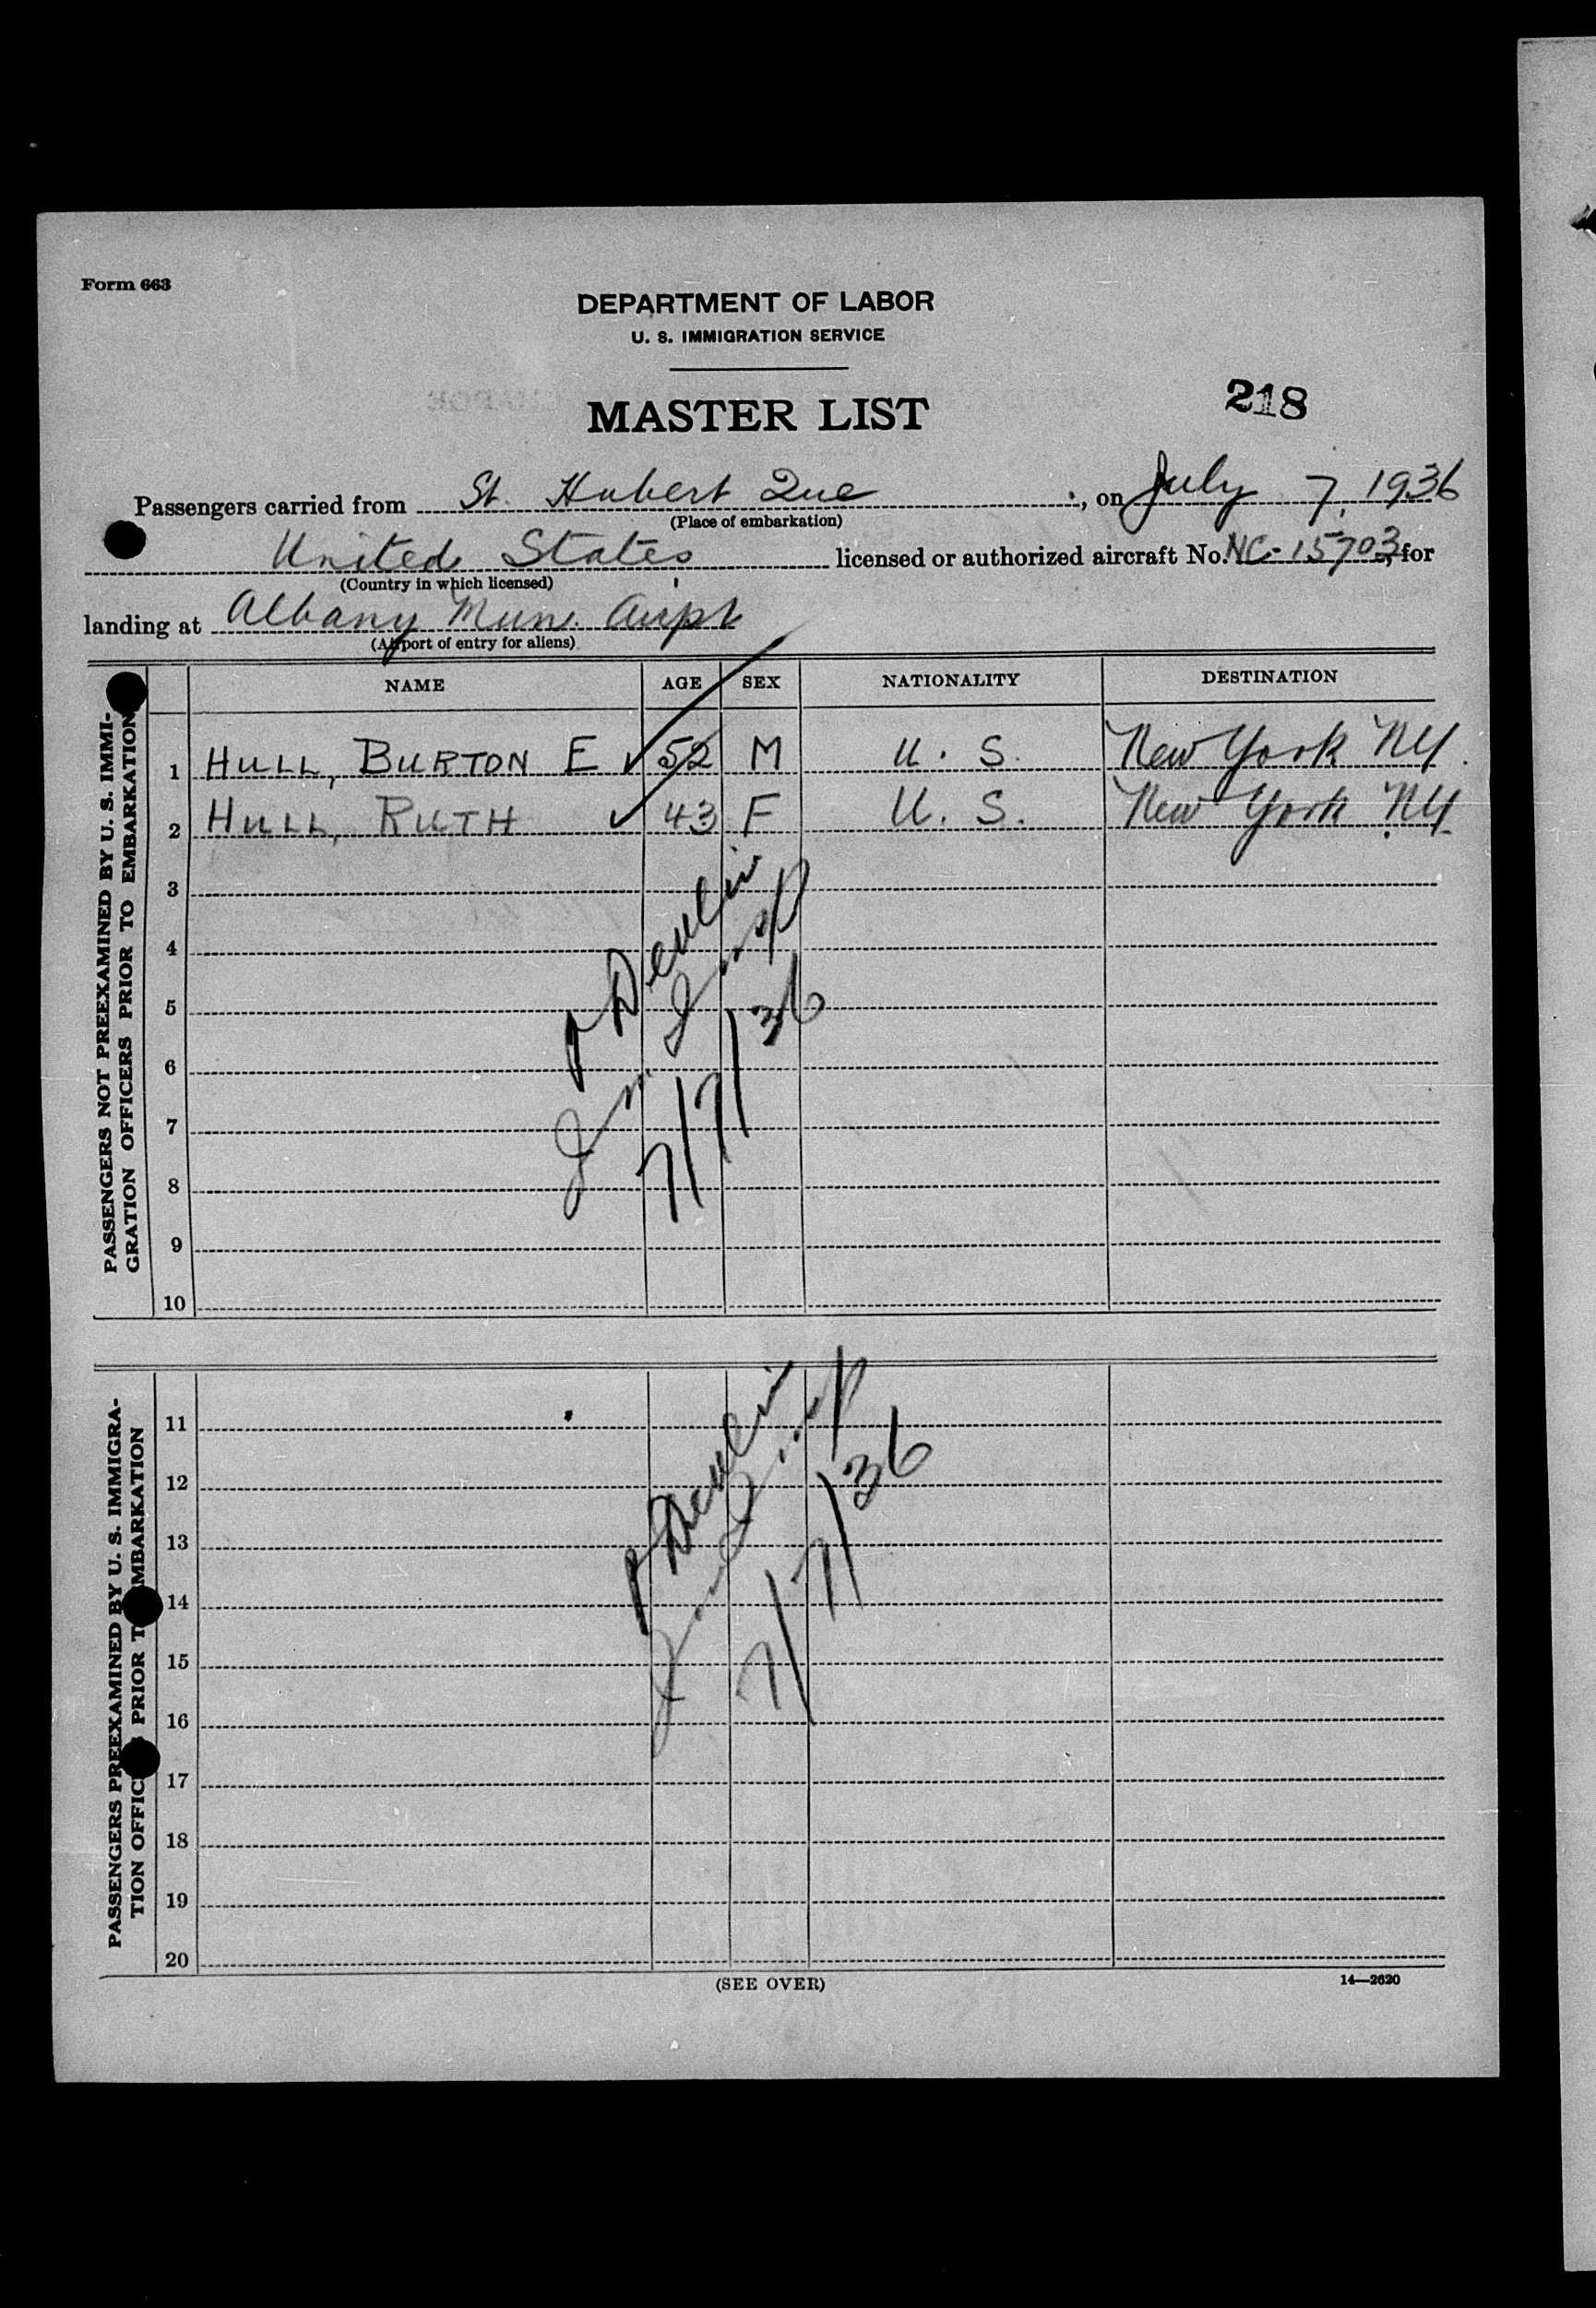 Form 663
DEPARTMENT OF LABOR
U. S. IMMIGRATION SERVICE
MASTER LIST
218
Passengers carried from St. Hubert Que, on July 7, 1936
(Place of embarkation)
United States licensed or authorized aircraft No. NC-15703, for
(Country in which licensed)
landing at Albany Mun. Airpt
(Airport of entry for aliens)
NAME AGE SEX NATIONALITY DESTINATION
PASSENGERS NOT PREEXAMINED BY U. S. IMMI-
GRATION OFFICERS PRIOR TO EMBARKATION
1 HULL, BURTON E ✓ 52 M U. S. New York NY.
2 HULL, RUTH ✓ 43 F U. S. New York NY.
3
4
5
6
7
8
9
10
P Devlin
Imm. Insp
7/7/36
PASSENGERS PREEXAMINED BY U. S. IMMIGRA-
TION OFFIC PRIOR T MBARKATION
11
12
13
14
15
16
17
18
19
20
P Devlin
Imm Insp
7/7/36
(SEE OVER)
14—2620